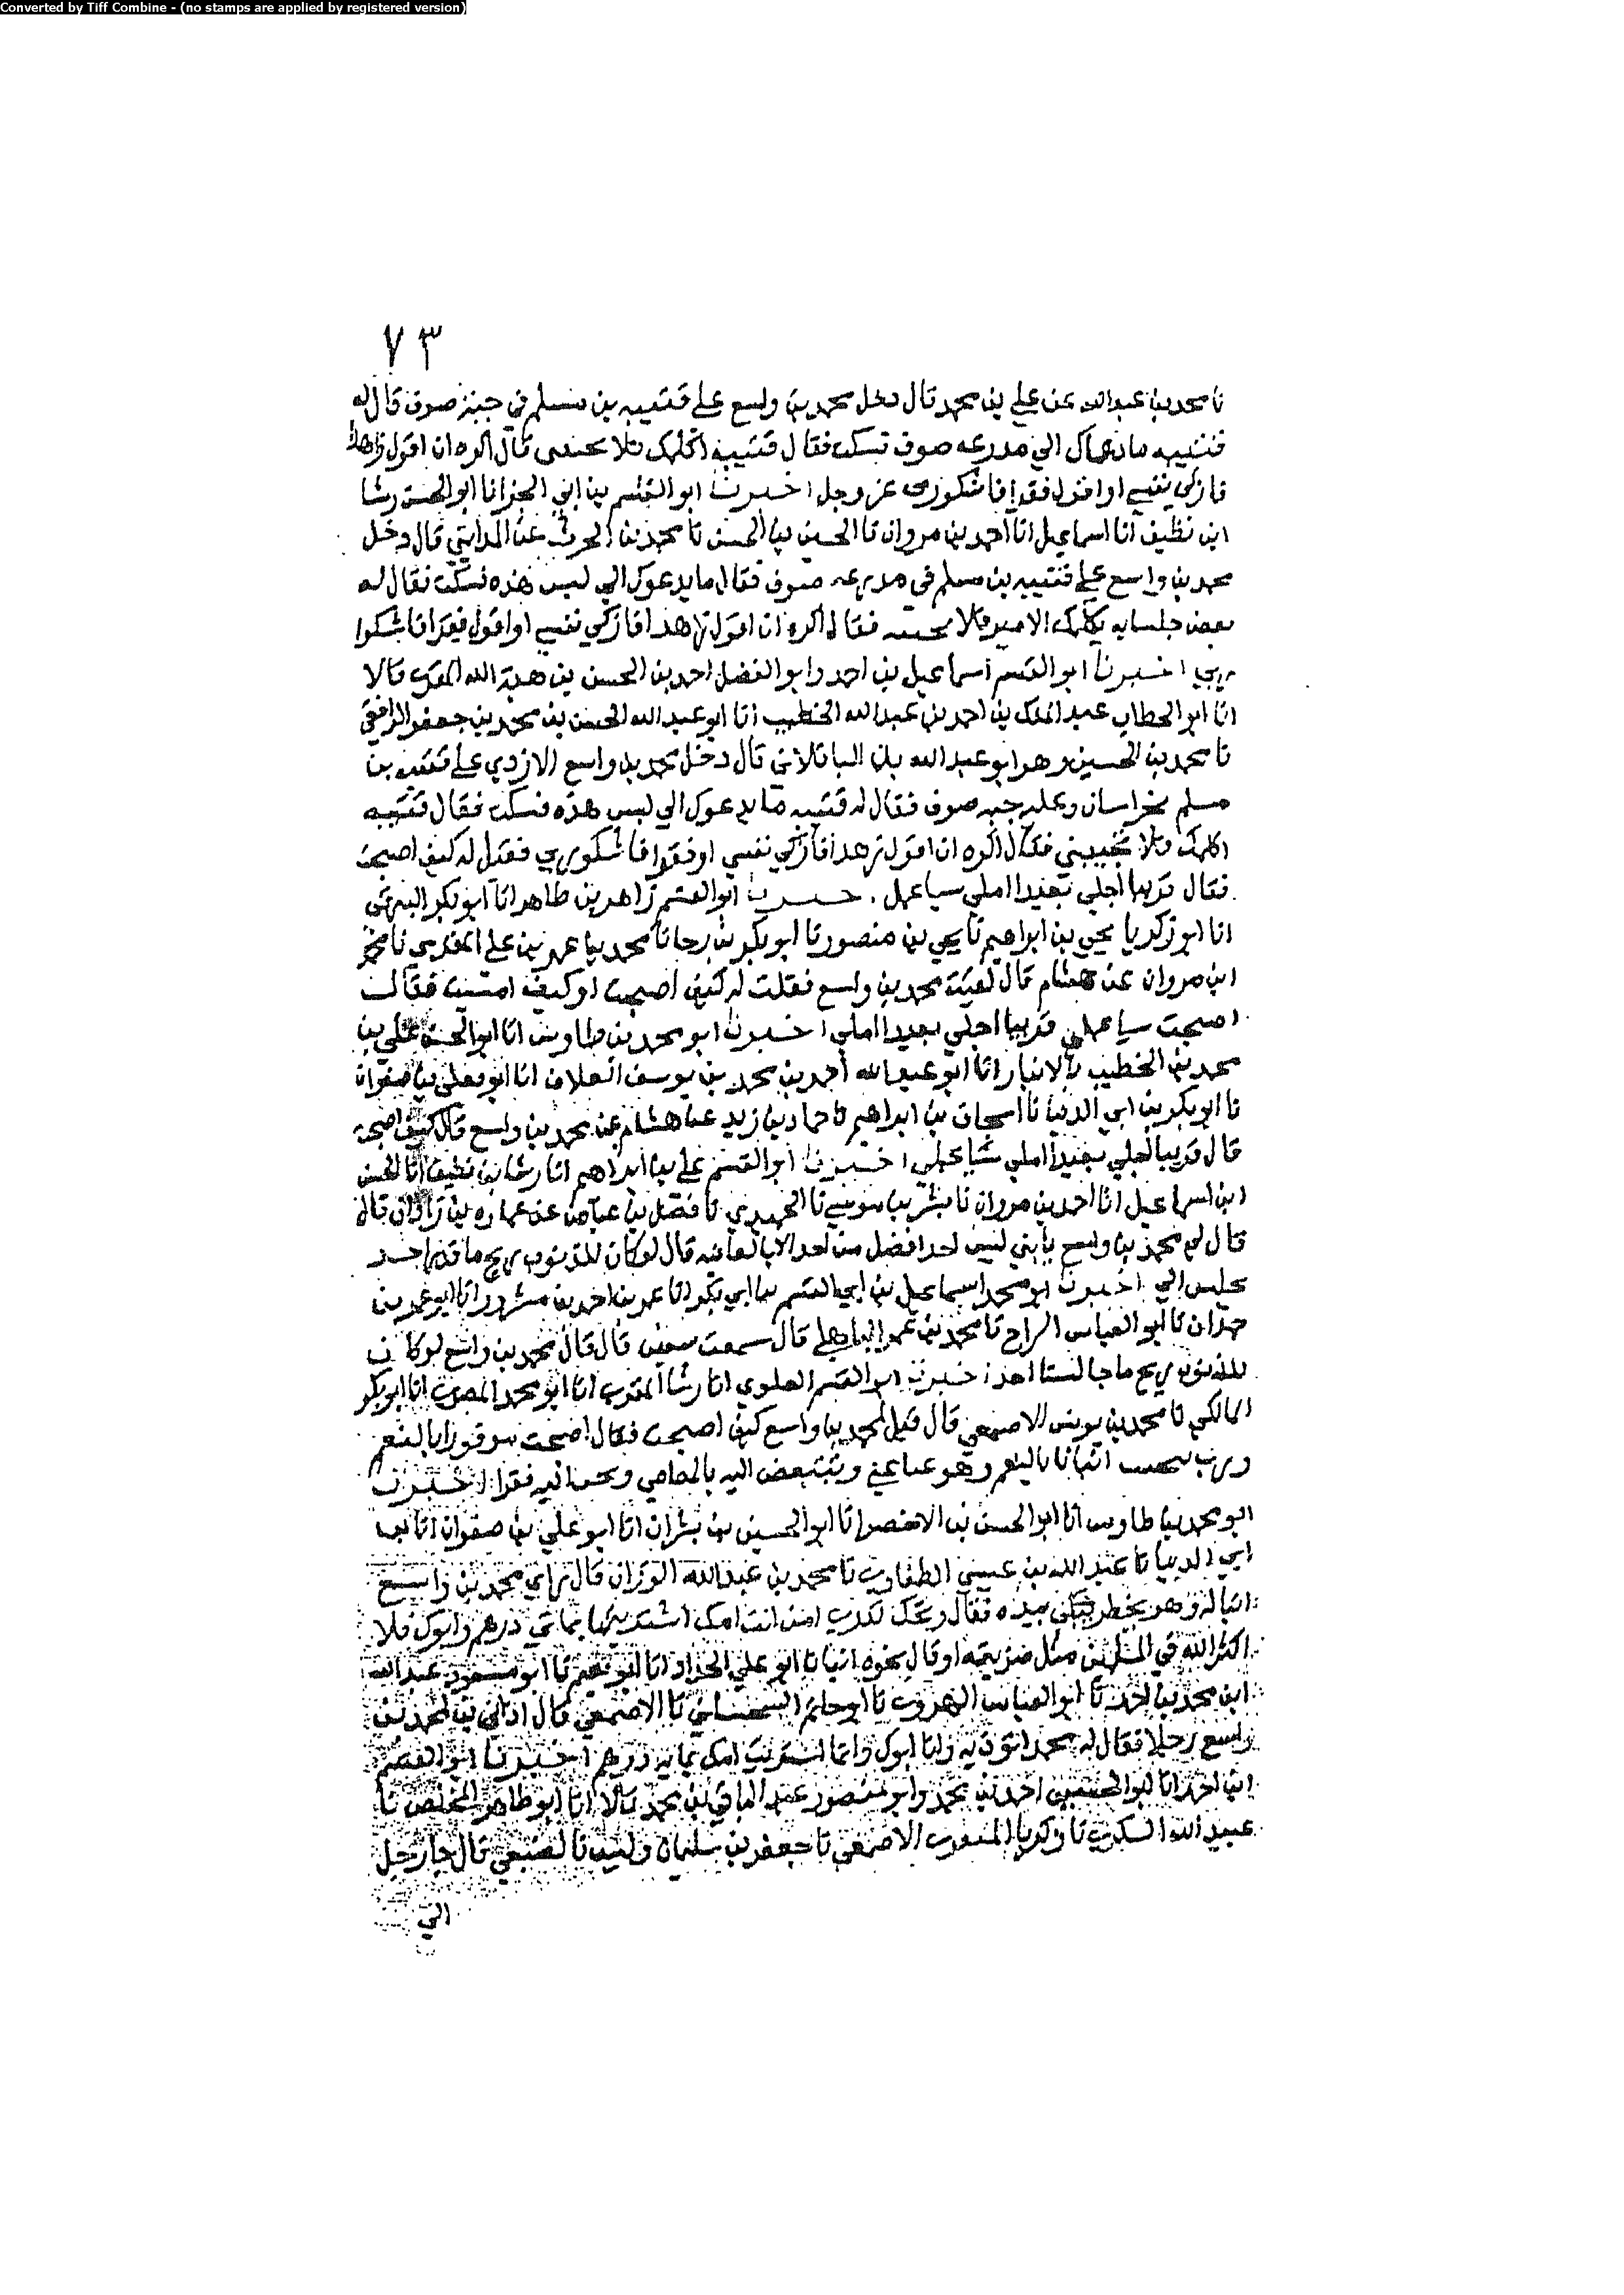 Converted by Tiff Combine - (no stamps are applied by registered version)
٧٣
نا محمد بن عبدالله عن علي بن محمد قال دخل محمد بن واسع علي قتيبه بن مسلم في جبة صوف قال له
قتيبه ما دعاك الي مدرعه صوف فسكت فقال قتيبه اكلمك فلا تجيبني قال اكره ان اقول زاهدا
فازكي نفسي او اقول فقيرا فاشكو ربي عز وجل اخبرنا ابو القسم بن ابي الجن انا ابو الحسن رشا
ابن نظيف انا اسماعيل انا احمد بن مروان نا الحسين بن الحسن نا محمد بن الحرث عن المدايني قال دخل
محمد بن واسع علي قتيبه بن مسلم في مدرعه صوف فقال ما يدعوك الي لبس هذه فسكت فقال له
بعض جلسايه يكلمك الامير فلا تجيبه فقال اكره ان اقول زهدا فازكي نفسي او اقول فقرا فاشكوا
ربي اخبرنا ابو القسم اسماعيل بن احمد وابو الفضل احمد بن الحسن بن هبة الله المقرى قالا
انا ابو الخطاب عبد الملك بن احمد بن عبد الله الخطيب انا ابو عبد الله الحسين بن محمد بن جعفر الرافقي
نا محمد بن الحسين وهو ابو عبد الله بن الباقلاني قال دخل محمد بن واسع الازدي علي قتيبه بن
مسلم بخراسان وعليه جبه صوف فقال له قتيبه ما يدعوك الي لبس هذه فسكت فقال قتيبه
اكلمك فلا تجيبني فقال اكره ان اقول زهدا فازكي نفسي او فقرا فاشكو ربي فقيل له كيف اصبحت
فقال قريبا اجلي بعيدا املي سيا عملي . اخبرنا ابو القسم زاهر بن طاهر انا ابو بكر البيهقي
انا ابو زكريا يحيى بن ابراهيم نا يحيى بن منصور نا ابو بكر بن رجا نا محمد بن عمر بن علي المقدمي نا محمد
ابن مروان عن هشام قال لقيت محمد بن واسع فقلت له كيف اصبحت او كيف امسيت فقال
اصبحت سيا عملي قريبا اجلي بعيدا املي اخبرنا ابو محمد بن طاوس انا ابو الحسن علي بن
محمد بن الخطيب بالانبار انا ابو عبد الله احمد بن محمد بن يوسف العلاف انا ابو علي بن صفوان
نا ابو بكر بن ابي الدنيا نا اسحاق بن ابراهيم نا حماد بن زيد عن هشام عن محمد بن واسع قال كيف اصبحت
قال قريبا اجلي بعيدا املي سيا عملي اخبرنا ابو القسم علي بن ابراهيم انا رشا بن نظيف انا الحسن
ابن اسماعيل انا احمد بن مروان نا بشر بن موسي نا الحميدي نا فضيل بن عياض عن عماره بن زاذان قال
قال لي محمد بن واسع يا بني ليس احد افضل من احد الا بالعافيه قال لو كان للذنوب ريح ما قدر احد
يجلس الي اخبرنا ابو محمد اسماعيل بن ابي القسم بن ابي بكر انا عمر بن احمد بن مسرور انا ابو عمرو بن
حمدان نا ابو العباس السراج نا محمد بن عمرو الباهلي قال سمعت سفين قال قال محمد بن واسع لو كان
للذنوب ريح ما جالسنا احد اخبرنا ابو القسم العلوي انا رشا المقرى انا ابو محمد المصرى انا ابو بكر
المالكي نا محمد بن يونس الاصمعي قال قيل لمحمد بن واسع كيف اصبحت فقال اصبحت موقورا بالنعم
بالنعم وهو عنا غني ونتبغض اليه بالمعاصي ونحن اليه فقرا اخبرنا
ابو محمد بن طاوس انا ابو الحسن بن الاخضر انا ابو الحسين بن بشران انا ابو علي بن صفوان انا ابن
ابي الدنيا نا عبد الله بن عيسى الطفاوي نا محمد بن عبد الله الوزان قال راي محمد بن واسع
ابنا له وهو يخطر بيده فقال ويحك تدري ابن من انت امك اشتريتها بمائتي درهم وابوك فلا
اكثر الله في المسلمين مثل ضربه او قال نحوه انبانا ابو علي الحداد انا ابو نعيم نا ابو مسعود عبد الله
ابن محمد بن احمد نا ابو العباس الهروي نا ابو حاتم السجستاني نا الاصمعي قال اذى بن لمحمد بن
واسع رجلا فقال له محمد اتوذيه وانا ابوك وانما اشتريت امك بمايه درهم اخبرنا ابو القسم
ابن احمد انا ابو الحسين احمد بن محمد وابو منصور عبد الباقي بن محمد قالا انا ابو طاهر المخلص نا
عبيد الله السكرى نا زكريا المنقرى الاصمعي نا جعفر بن سليمان الضبعي قال جا رجل
الي